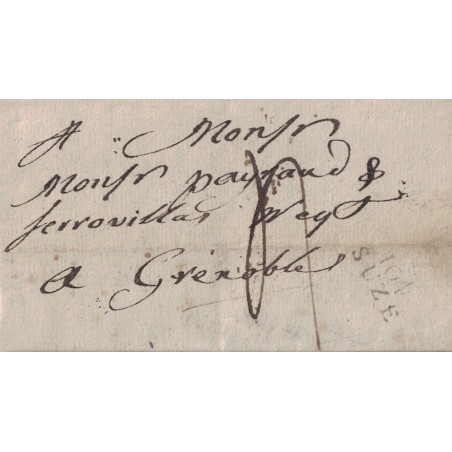 A Monsr
Monsr paynaud &
ferrovillas Negt
a Grenoble
101
SUZE